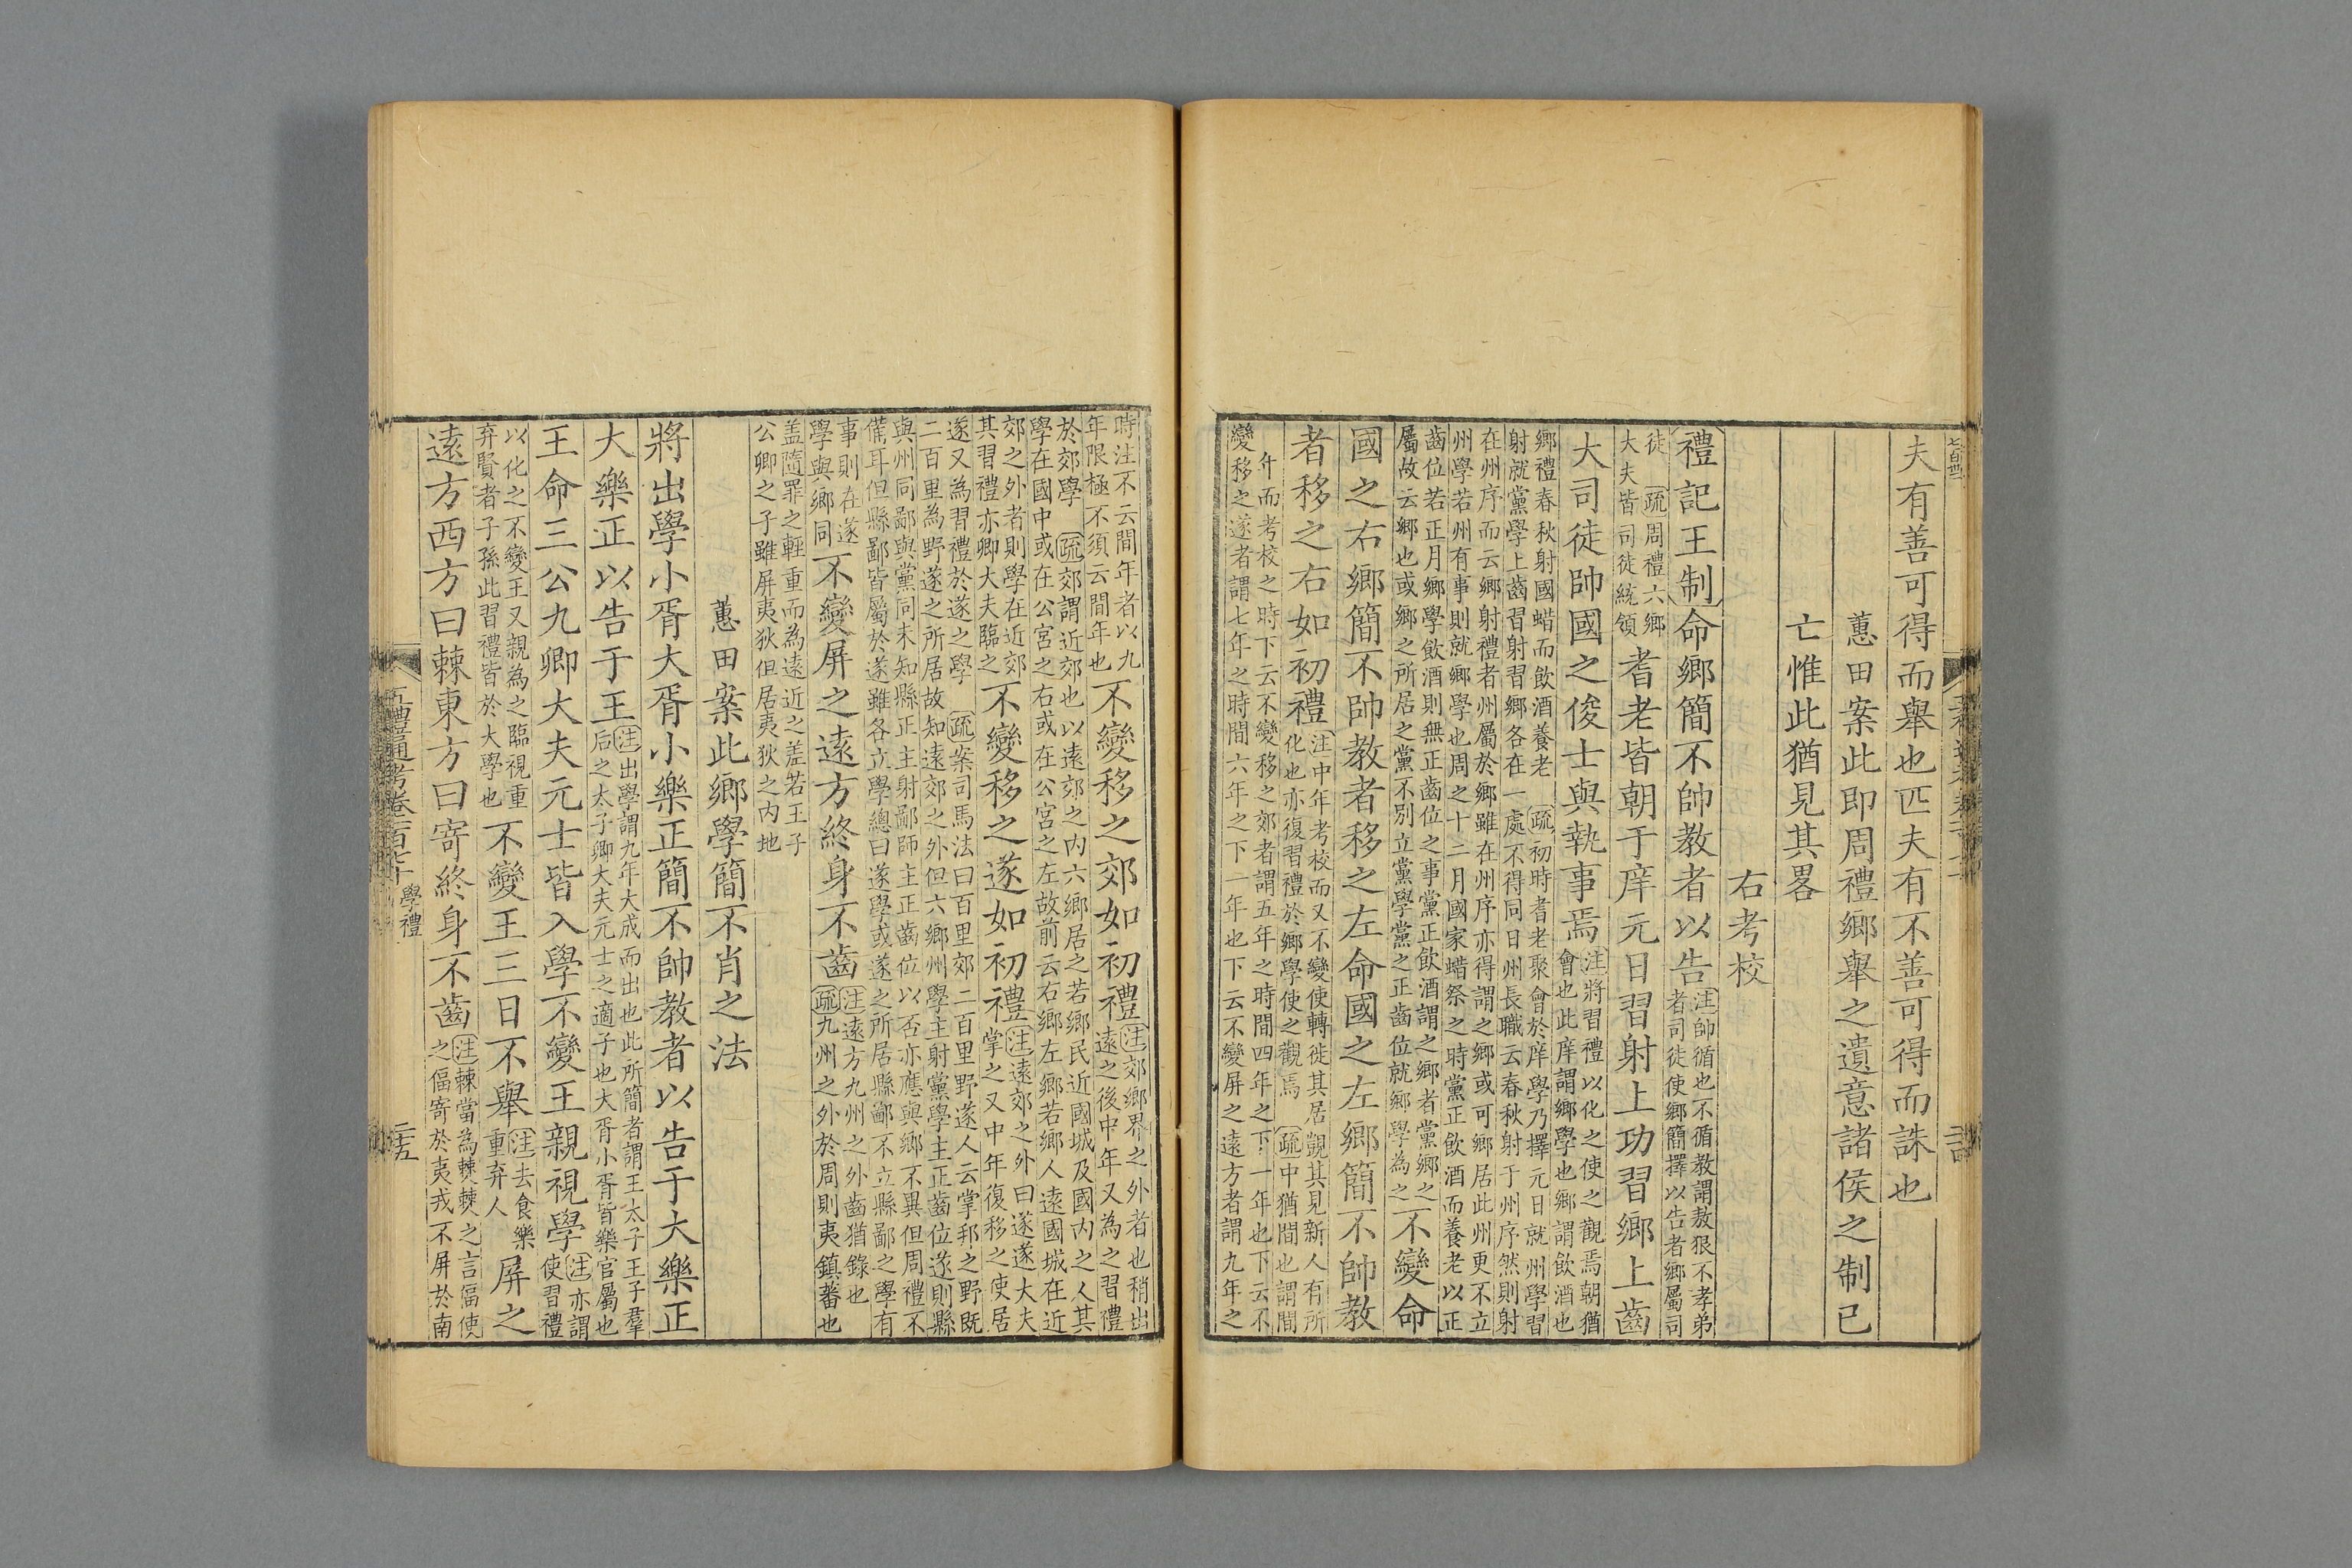 夫有善可得而舉也匹夫有不善可得而誅也
蕙田案此即周禮鄉舉之遺意諸侯之制已
亡惟此猶見其畧
右考校
禮記王制命鄉簡不帥教者以告
注帥循也不循教謂敖狠不孝弟
者司徒使鄉簡擇以告者鄉屬司
徒 疏周禮六鄉
大夫皆司徒統領
耆老皆朝于庠元日習射上功習鄉上齒
大司徒帥國之俊士與執事焉
注將習禮以化之使之觀焉朝猶
會也此庠謂鄉學也鄉謂飲酒也
鄉禮春秋射國蜡而飲酒養老 疏初時耆老聚會於庠學乃擇元日就州學習
射就黨學上齒習射習鄉各在一處不得同日州長職云春秋射于州序然則射
在州序而云鄉射禮者州屬於鄉雖在州序亦得謂之鄉或可鄉居此州更不立
州學若州有事則就鄉學也周之十二月國家蜡祭之時黨正飲酒而養老以正
齒位若正月鄉學飲酒則無正齒位之事黨正飲酒謂之鄉者黨鄉之
屬故云鄉也或鄉之所居之黨不別立黨學黨之正齒位就鄉學為之
不變命
國之右鄉簡不帥教者移之左命國之左鄉簡不帥教
者移之右如初禮
注中年考校而又不變使轉徙其居覬其見新人有所
化也亦復習禮於鄉學使之觀焉 疏中猶間也謂間
年而考校之時下云不變移之郊者謂五年之時間四年之下一年也下云不
變移之遂者謂七年之時間六年之下一年也下云不變屏之遠方者謂九年之
時注不云間年者以九
年限極不須云間年也
不變移之郊如初禮
注郊鄉界之外者也稍出
遠之後中年又為之習禮
於郊學 疏郊謂近郊也以遠郊之內六鄉居之若鄉民近國城及國內之人其
學在國中或在公宮之右或在公宮之左故前云右鄉左鄉若鄉人遠國城在近
郊之外者則學在近郊
其習禮亦卿大夫臨之
不變移之遂如初禮
注遠郊之外曰遂遂大夫
掌之又中年復移之使居
遂又為習禮於遂之學 疏案司馬法曰百里郊二百里野遂人云掌邦之野既
二百里為野遂之所居故知遠郊之外但六鄉州學主射黨學主正齒位遂則縣
與州同鄙與黨同未知縣正主射鄙師主正齒位以否亦應與鄉不異但周禮不
備耳但縣鄙皆屬於遂雖各立學總曰遂學或遂之所居縣鄙不立縣鄙之學有
事則在遂
學與鄉同
不變屏之遠方終身不齒
注遠方九州之外齒猶錄也
疏九州之外於周則夷鎮蕃也
盖隨罪之輕重而為遠近之差若王子
公卿之子雖屏夷狄但居夷狄之內地
蕙田案此鄉學簡不肖之法
將出學小胥大胥小樂正簡不帥教者以告于大樂正
大樂正以告于王
注出學謂九年大成而出也此所簡者謂王太子王子羣
后之太子卿大夫元士之適子也大胥小胥皆樂官屬也
王命三公九卿大夫元士皆入學不變王親視學
注亦謂
使習禮
以化之不變王又親為之臨視重
弃賢者子孫此習禮皆於大學也
不變王三日不舉
注去食樂
重弃人
屏之
遠方西方曰棘東方曰寄終身不齒
注棘當為僰僰之言偪使
之偪寄於夷戎不屏於南
學禮
三五